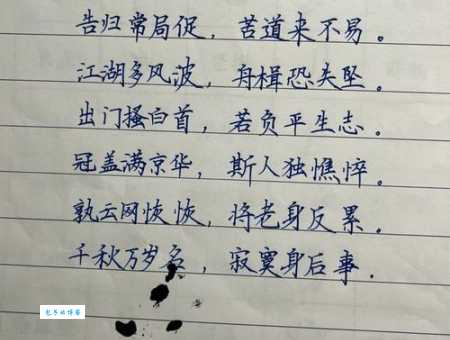 告归常局促，苦道来不易。
江湖多风波，舟楫恐失坠。
出门搔白首，若负平生志。
冠盖满京华，斯人独憔悴。
孰云网恢恢，将老身反累。
千秋万岁名，寂寞身后事.